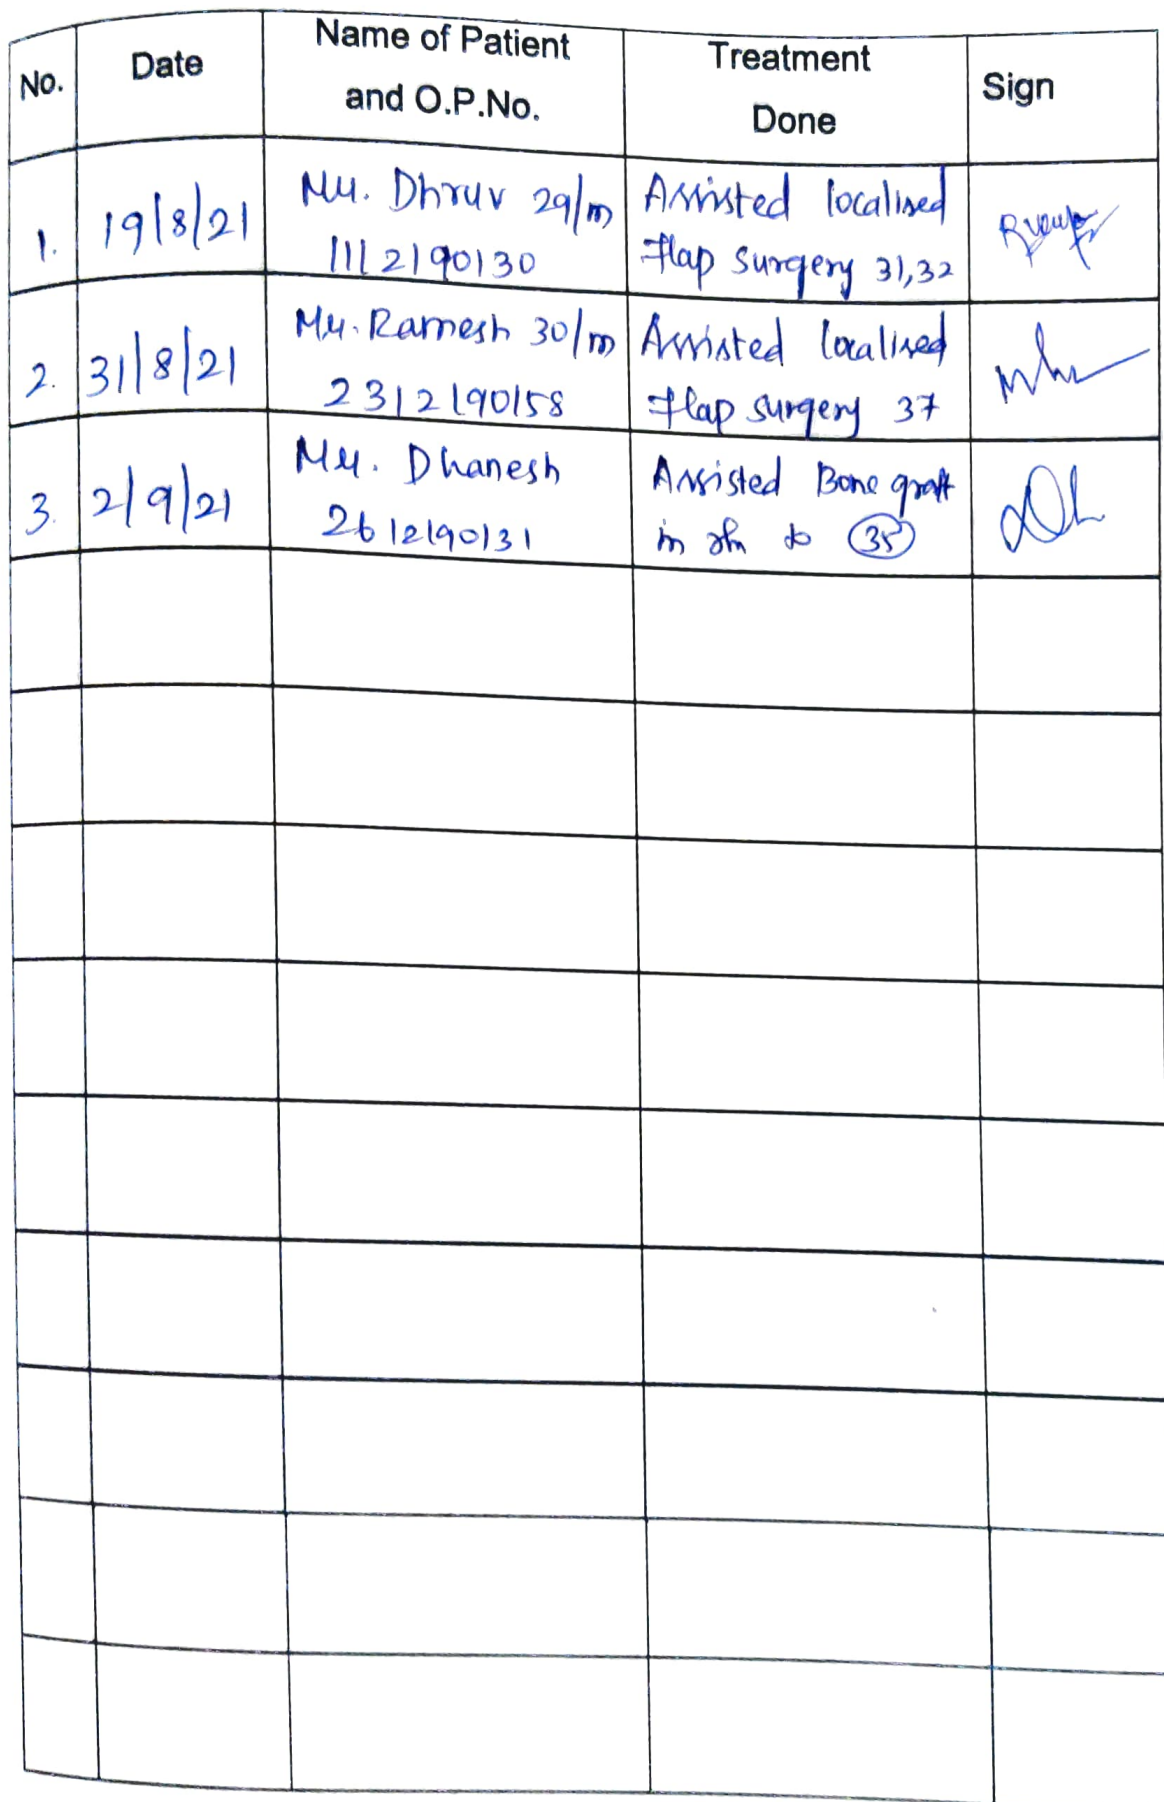 No.
Date
Name of Patient
and O.P.No.
Treatment
Done
Sign
1.
19/8/21
Mr. Dhruv 29/m
1112190130
Assisted localised
flap surgery 31,32
2.
31/8/21
Mr. Ramesh 30/m
2312190158
Assisted localised
flap surgery 37
3.
2/9/21
Mr. Dhanesh
2612190131
Assisted Bone graft
in to 35